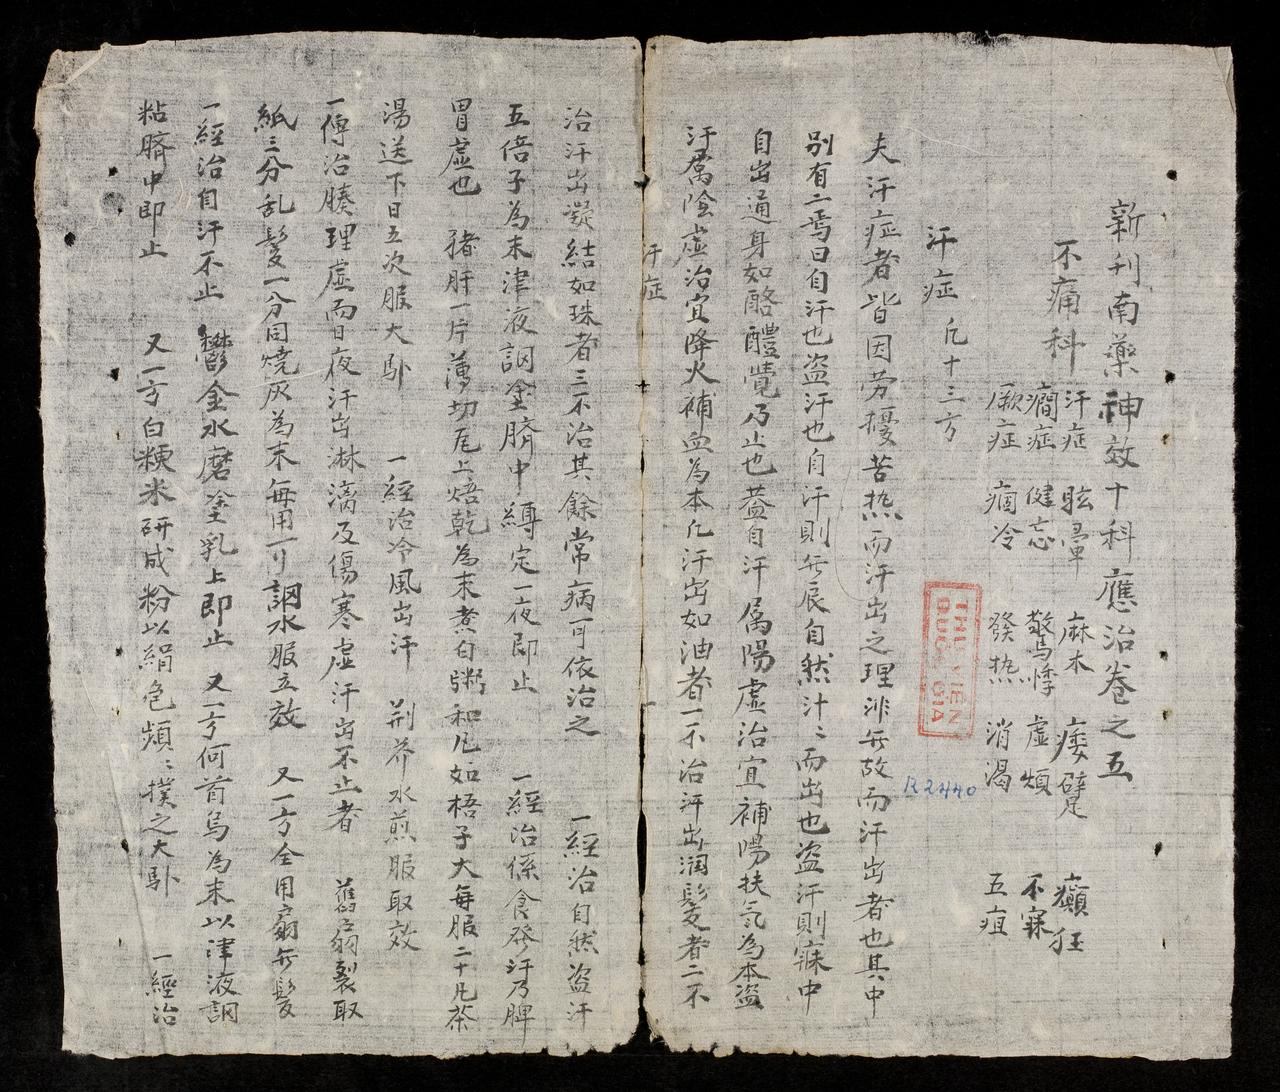 新刊南藥神效十科應治卷之五
不痛科
汗症 眩暈 麻木 痿躄 癲狂
癇症 健忘 驚悸 虛煩 不寐
厥症 痼冷 發热 消渴 五疸
汗症 凡十三方
夫汗症者皆因劳擾苦热而汗出之理非无故而汗出者也其中
别有二焉曰自汗也盗汗也自汗則无辰自然汁〻而出也盗汗則寐中
自出通身如酪醴覺乃止也蓋自汗属陽虛治宜補陽扶氣為本盗
汗属陰虛治宜降火補血為本凡汗出如油者一不治汗出润髮者二不
汗症
治汗出凝結如珠者三不治其餘常病可依治之 一經治自然盗汗
五倍子為末津液調塗臍中縳定一夜即止 一經治係食發汗乃脾
胃虛也 猪肝一片薄切瓦上焙乾為末煮白粥和凡如梧子大每服二十凡茶
湯送下日五次服大卧 一經治冷風出汗 荆芥水煎服取效
一傳治腠理虛而日夜汗出淋漓及傷寒虛汗出不止者 舊扇裂取
紙三分乱髮一分同燒灰為末每用一刂調水服立效 又一方全用扇无髮
一經治自汗不止 鬱金水磨塗乳上即止 又一方何首烏為末以津液調
粘臍中即止 又一方白粳米研成粉以絹色頻〻撲之大卧 一經治
THU VIEN
QUOC GIA
R.2440